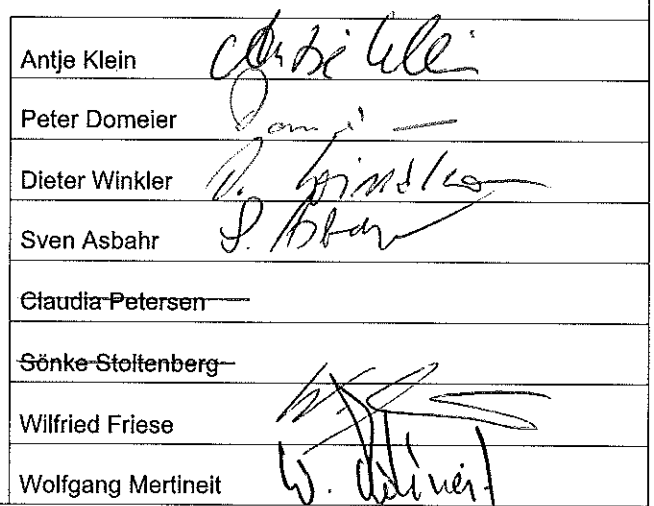 Antje Klein Antje Klein
Peter Domeier
Dieter Winkler D. Winkler
Sven Asbahr S. Asbahr
Claudia Petersen
Sönke Stoltenberg
Wilfried Friese
Wolfgang Mertineit W. Mertineit